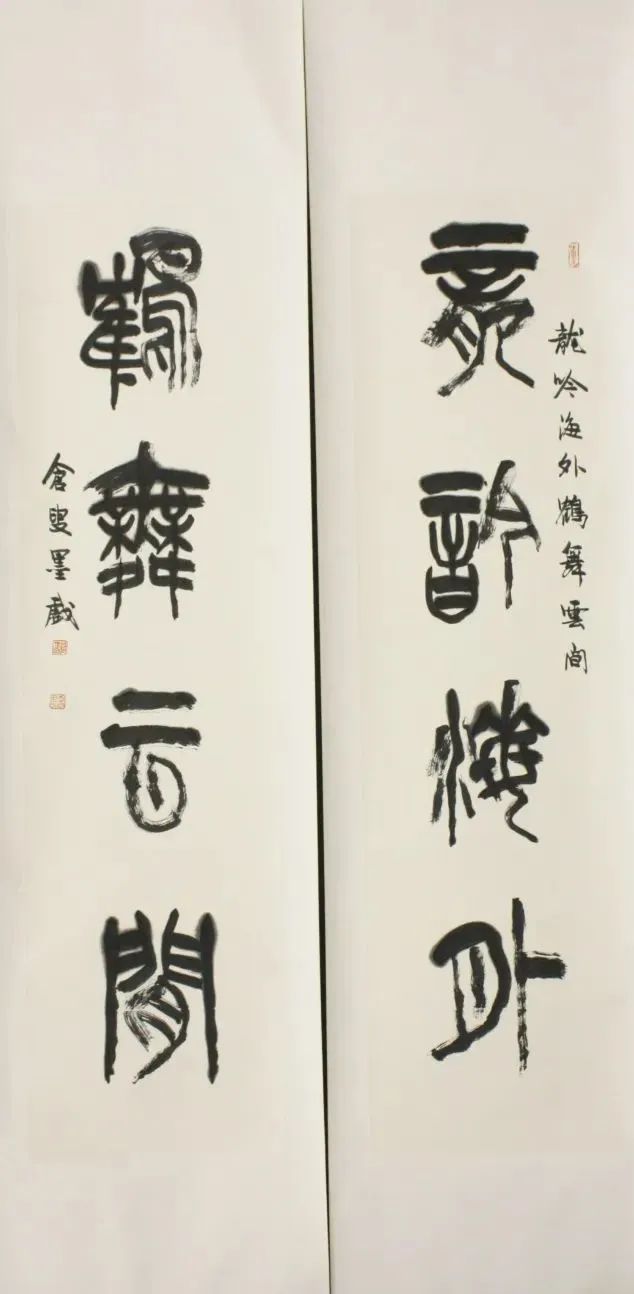 龍吟海外鶴舞雲間
龍吟海外
鶴舞云閒
倉叟墨戲